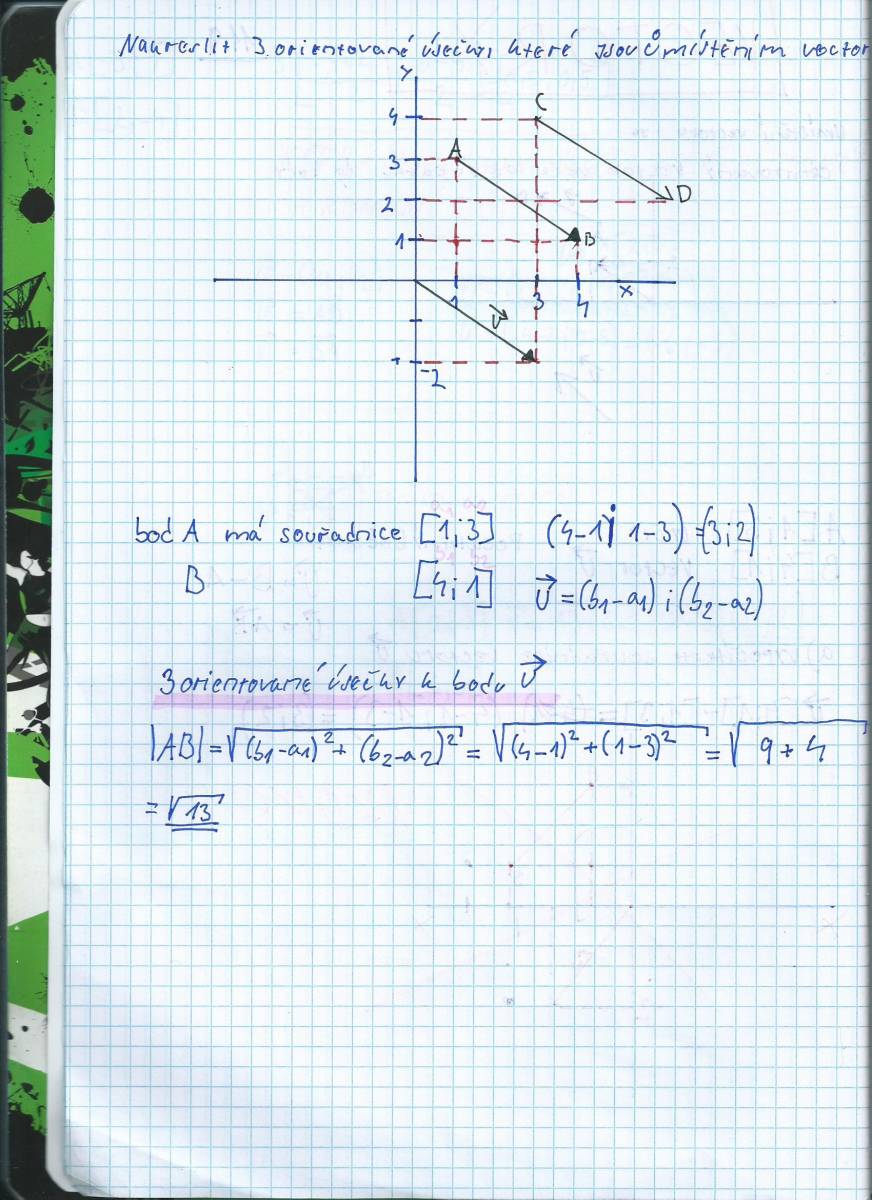 Nakreslit 3 orientované úsečky které jsou ůmístěním vector
y
C
4
A
3
2
D
1
B
1
3
4
x
v⃗
-2
bod A má souřadnice [1;3] (4-1; 1-3) = (3;2)
B [4;1] v⃗ = (b1-a1) ; (b2-a2)
3 orientované úsečky k bodu v⃗
|AB| = √(b1-a1)² + (b2-a2)² = √(4-1)² + (1-3)² = √9 + 4
= √13